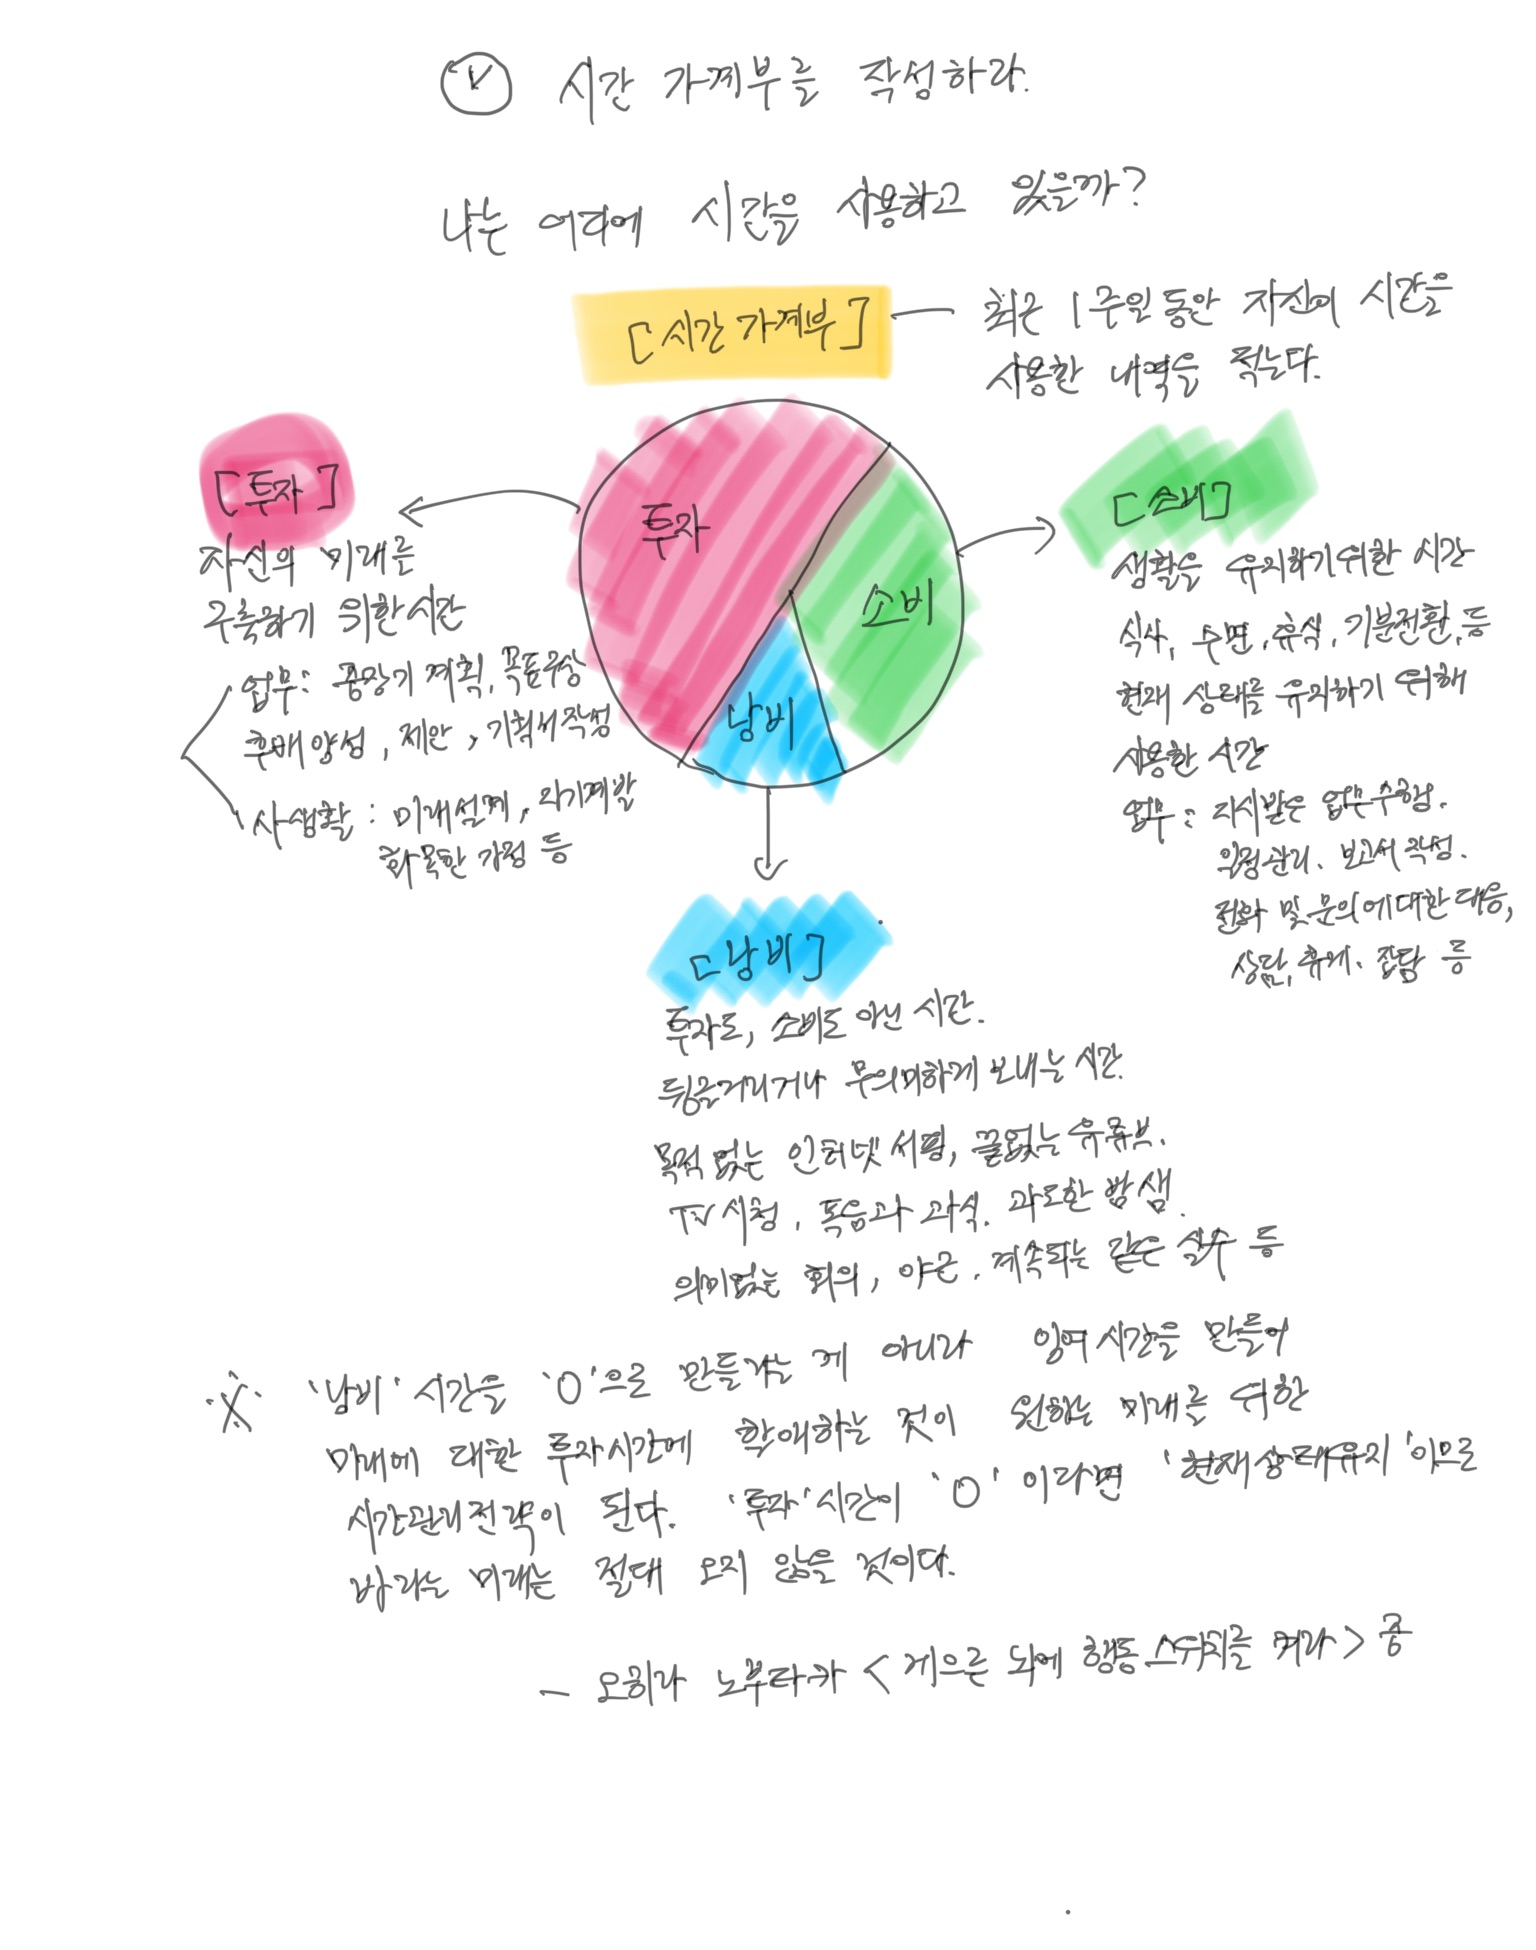 시간 가계부를 작성하라.
나는 어디에 시간을 사용하고 있을까?
[시간 가계부]
최근 1주일동안 자신이 시간을
사용한 내역을 적는다.
[투자]
자신의 미래를
구축하기 위한 시간
업무: 중장기 계획, 목표구상
후배양성, 제안, 기획서작성
사생활: 미래설계, 자기계발
화목한 가정 등
투자
소비
낭비
[소비]
생활을 유지하기위한 시간
식사, 수면, 휴식, 기분전환, 등
현재 상태를 유지하기 위해
사용한 시간
업무: 지시받은 업무수행.
일정관리. 보고서 작성.
전화 및 문의에대한 대응,
상담, 휴게. 잡담 등
[낭비]
투자도, 소비도 아닌 시간.
뒹굴거리거나 무의미하게 보내는 시간.
목적 없는 인터넷 서핑, 끝없는 유튜브.
TV시청, 폭음과 과식. 과도한 밤샘.
의미없는 회의, 야근. 계속되는 같은 실수 등
※ '낭비' 시간을 '0'으로 만들라는 게 아니라 잉여시간을 만들어
미래에 대한 투자시간에 할애하는 것이 원하는 미래를 위한
시간관리전략이 된다. '투자' 시간이 '0' 이라면 '현재상태유지'이므로
바라는 미래는 절대 오지 않을 것이다.
- 오히라 노부타카 <게으른 뇌에 행동스위치를 켜라> 중